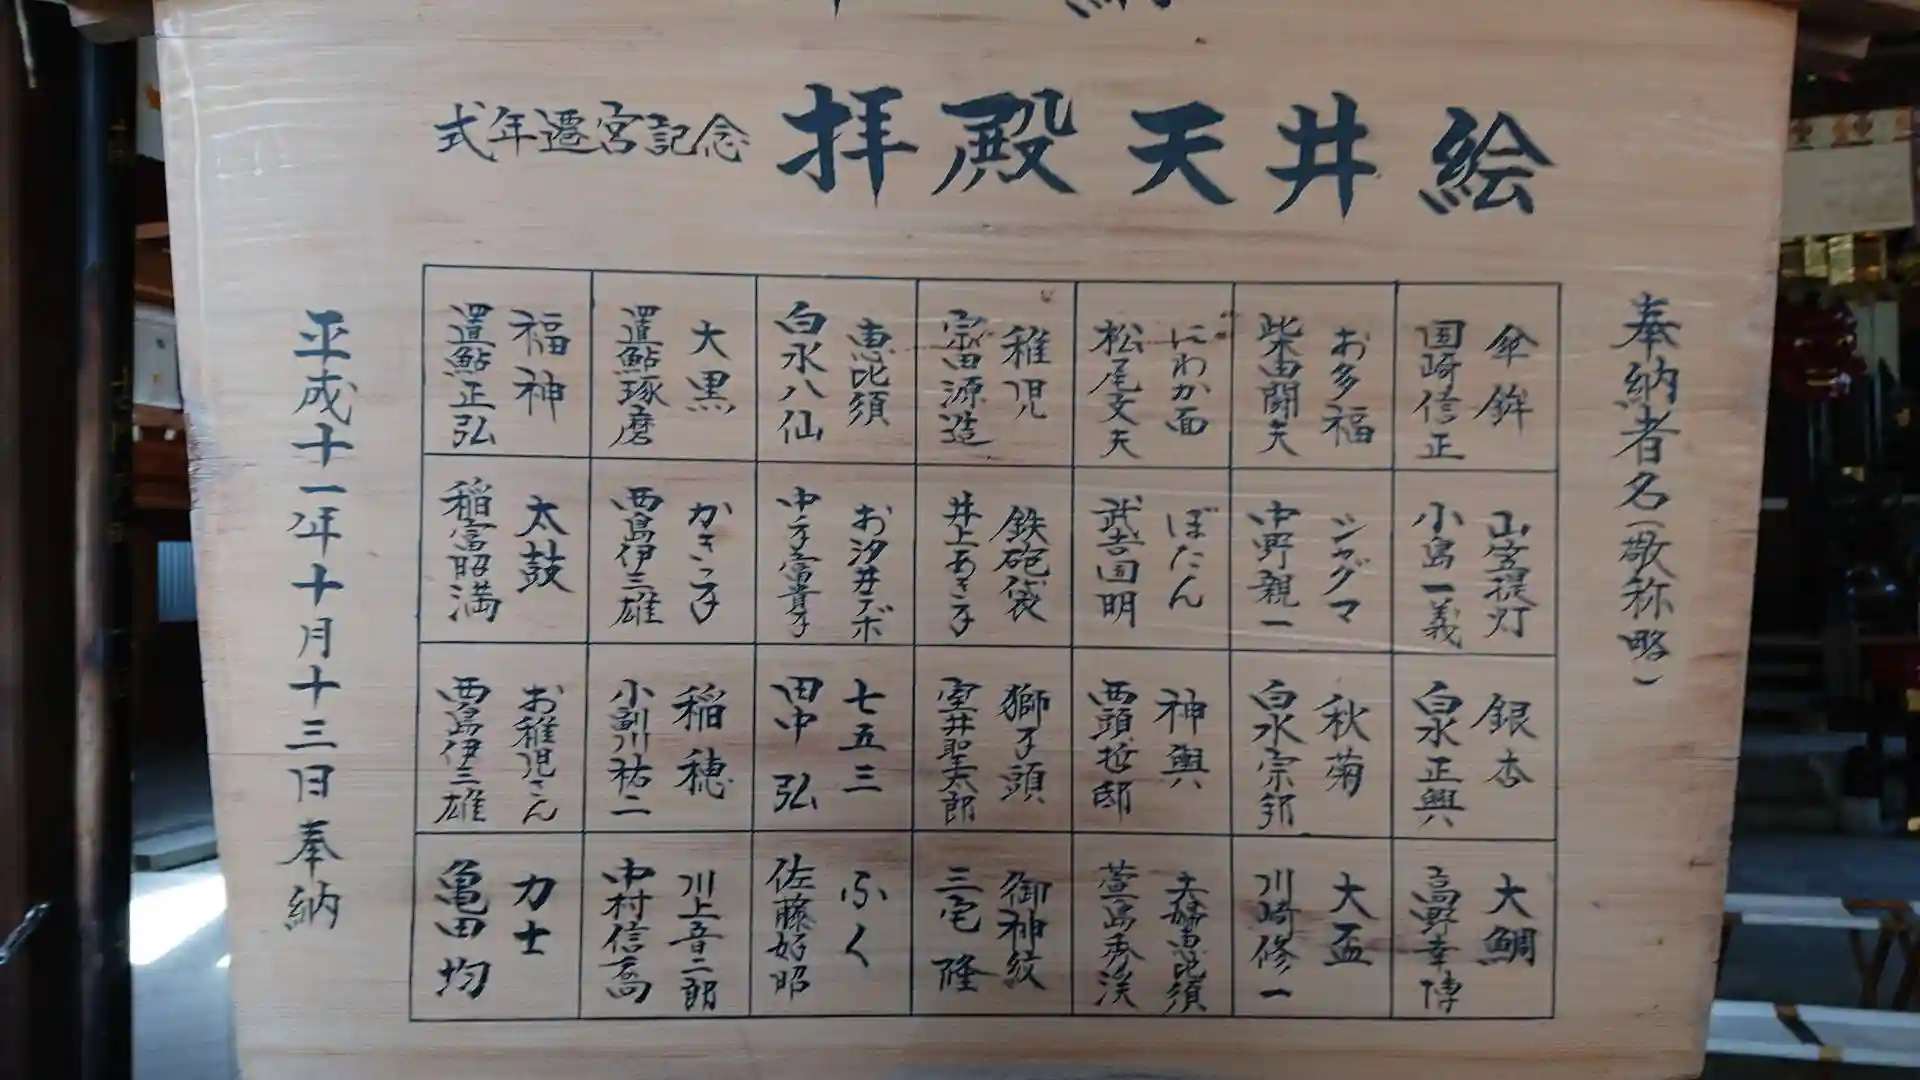 式年遷宮記念 拝殿天井絵
奉納者名(敬称略)
傘鉾 国崎信正
お多福 柴田闘夫
にわか面 松尾文夫
稚児 宗田源造
恵比須 白水八仙
大黒 置鮎琢磨
福神 置鮎正弘
山笠提灯 小島一義
シャグマ 中野親一
ぼたん 武吉国明
鉄砲袋 井上あき子
お汐井テボ 中手富貴子
かきっ子 西島伊三雄
太鼓 稲富昭満
銀杏 白水正興
秋菊 白水宗邦
神輿 西頭哲郎
獅子頭 室井聖太郎
七五三 田中弘
稲穂 小副川祐二
お稚児さん 西島伊三雄
大鯛 高野幸博
大盃 川崎修一
夫婦恵比須 萱島秀渓
御神紋 三宅隆
ふく 佐藤好昭
川上音二郎 中村信喬
力士 亀田均
平成十一年十月十三日奉納